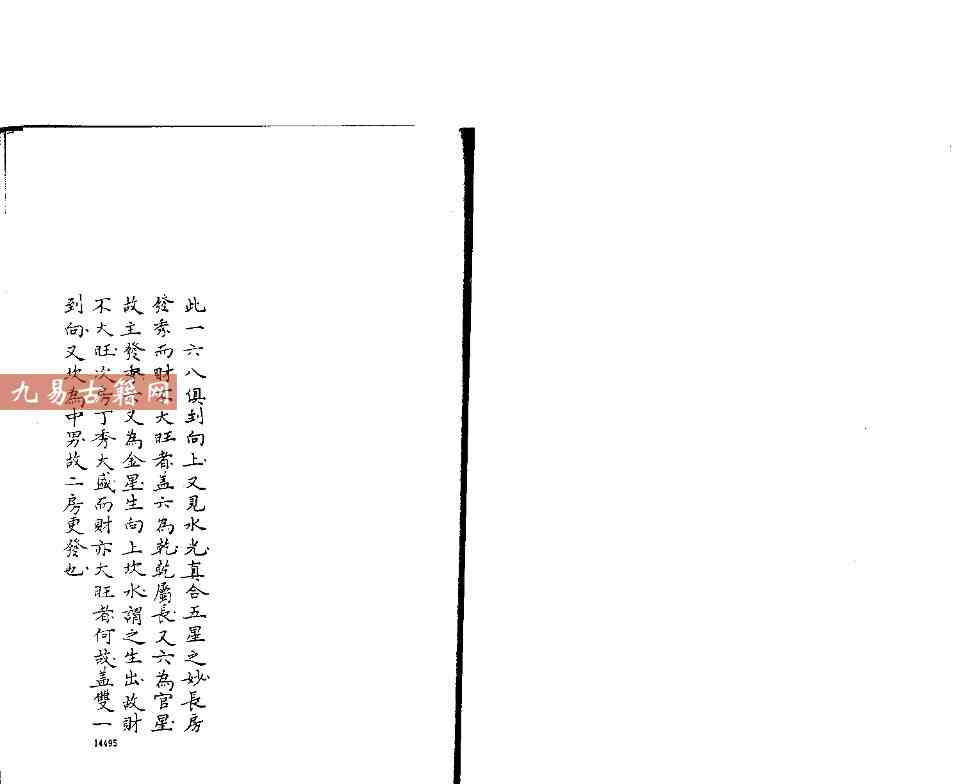 此一六八俱到向上又見水光真合五星之妙長房
發秀而財不大旺者蓋六為乾乾屬長又六為官星
故主發秀六又為金星生向上坎水謂之生出故財
不大旺次房丁秀大盛而財亦大旺者何故蓋雙一
到向又坎為中男故二房更發也
九易古籍网
14495